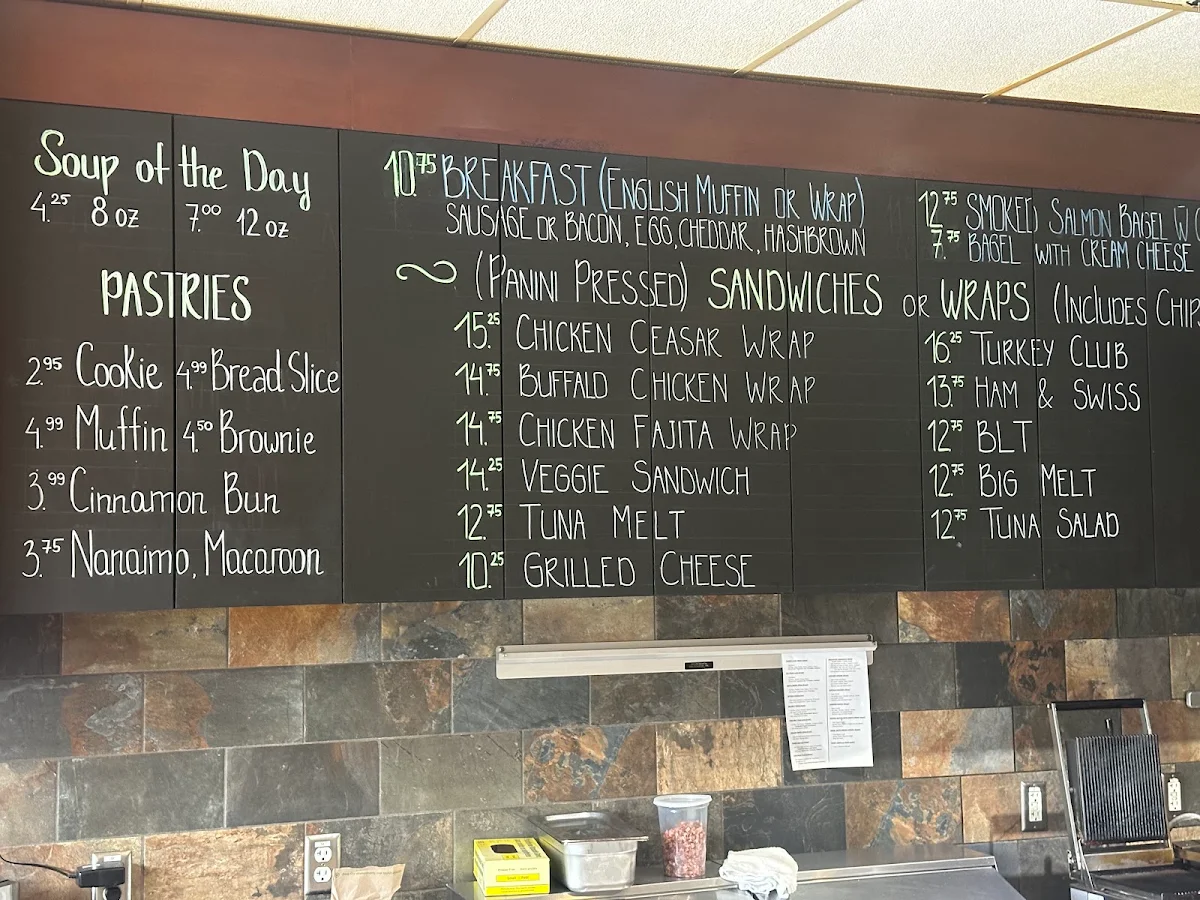 Soup of the Day
4.25 8 oz 7.00 12 oz
PASTRIES
2.95 Cookie 4.99 Bread Slice
4.99 Muffin 4.50 Brownie
3.99 Cinnamon Bun
3.75 Nanaimo, Macaroon
10.75 BREAKFAST (ENGLISH MUFFIN OR WRAP)
SAUSAGE OR BACON, EGG, CHEDDAR, HASHBROWN
12.75 SMOKED SALMON BAGEL W
7.75 BAGEL WITH CREAM CHEESE
~ (PANINI PRESSED) SANDWICHES OR WRAPS (INCLUDES CHIPS
15.25 CHICKEN CEASAR WRAP
14.75 BUFFALO CHICKEN WRAP
14.75 CHICKEN FAJITA WRAP
14.25 VEGGIE SANDWICH
12.75 TUNA MELT
10.25 GRILLED CHEESE
16.25 TURKEY CLUB
13.75 HAM & SWISS
12.75 BLT
12.75 BIG MELT
12.75 TUNA SALAD